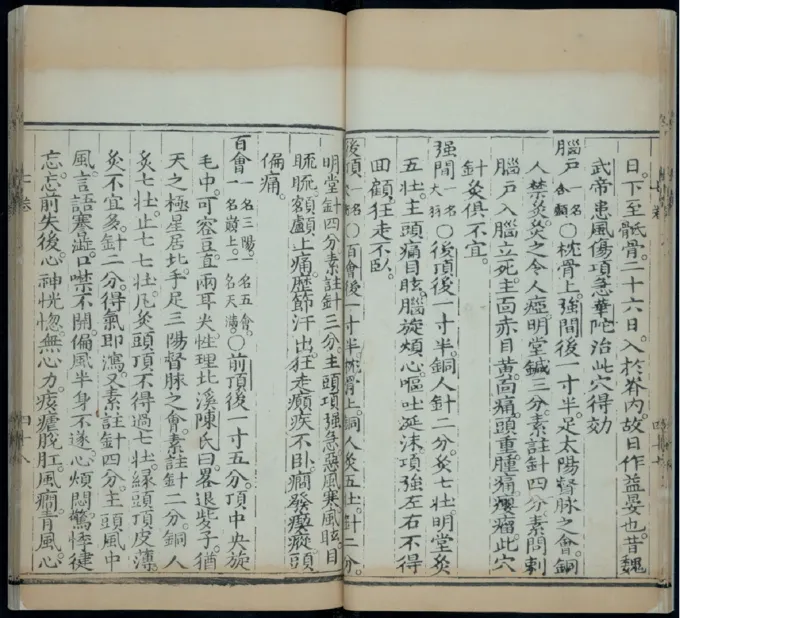 日。下至骶骨。二十六日。入於脊內。故日作益晏也。昔魏
武帝患風傷項急。華陀治此穴得効
腦戶一名合顱○枕骨上。強間後一寸半。足太陽督脉之會。銅
人禁灸。灸之令人瘂。明堂鍼三分。素註針四分。素問刺
腦戶入腦立死。主面赤目黃。面痛。頭重腫痛。癭瘤。此穴
針灸俱不宜。
强間一名大羽○後頂後一寸半。銅人針二分。灸七壯。明堂灸
五壯。主頭痛目眩。腦旋煩心。嘔吐涎沫。項強左右不得
回顧。狂走不臥。
後頂一名交衝○百會後一寸半。枕骨上。銅人灸五壯。針二分。
明堂針四分。素註針三分。主頭項强急。惡風寒。風眩。目
䀮䀮。額顱上痛。歷節汗出。狂走癲疾不臥。癇發瘈瘲。頭
偏痛。
百會一名三陽。一名五會。一名巔上。一名天滿。○前頂後一寸五分。頂中央旋
毛中。可容豆。直兩耳尖。性理北溪陳氏曰。畧退些子。猶
天之極星居北。手足三陽督脉之會。素註針二分。銅人
灸七壯。止七七壯。凡灸頭頂。不得過七壯。緣頭頂皮薄。
灸不宜多。針二分。得氣即瀉。又素註針四分。主頭風中
風。言語蹇澁。口噤不開。偏風半身不遂。心煩悶。驚悸健
忘。忘前失後。心神恍惚。無心力。痎瘧。脫肛。風癇。青風。心
七卷
四十八